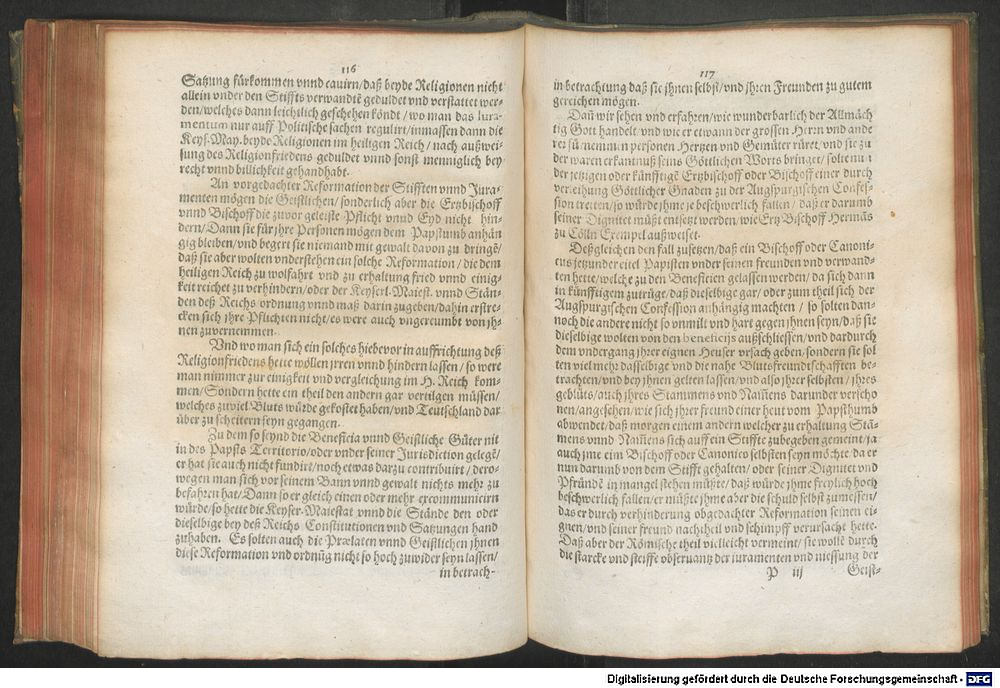 116
Satzung fürkommen vnnd cauirn/daß beyde Religionen nicht
allein vnder den Stiffts verwandtē geduldet vnd verstattet wer-
den/welches dann leichtlich geschehen köndt/ wo man das Iura-
mentum nur auff Politische sachen regulirt/inmassen dann die
Keys. May. beyde Religionen im heiligen Reich/ nach außwei-
sung des Religionfriedens geduldet vnnd sonst menniglich bey
recht vnnd billichkeit gehandhabt.
An vorgedachter Reformation der Stifften vnnd Jura-
menten mögen die Geistlichen/ sonderlich aber die Ertzbischoff
vnnd Bischoff die zuvor geleiste Pflicht vnnd Eyd nicht hin-
dern/ Dann sie für jhre Personen mögen dem Papstumb anhän
gig bleiben/ vnd begert sie niemand mit gewalt davon zu dringē/
daß sie aber wolten vnderstehen ein solche Reformation/ die dem
heiligen Reich zu wolfahrt vnd zu erhaltung fried vnnd einig-
keit reichet zu verhindern/ oder der Keyserl. Maiest. vnnd Stän-
den deß Reichs ordnung vnnd maß darin zugeben/ dahin erstre-
cken sich jhre Pflichten nicht/ es were auch vngereumbt von jh-
nen zuvernemmen.
Vnd wo man sich ein solches hiebevor in auffrichtung deß
Religionfriedens hette wöllen jrren vnnd hindern lassen/ so were
man nimmer zur einigkeit vnd vergleichung im H. Reich kom-
men/ Sondern hette ein theil den andern gar vertilgen müssen/
welches zuviel Bluts würde gekostet haben/ vnd Teutschland dar
über zu scheitern seyn gegangen.
Zu dem so seynd die Beneficia vnnd Geistliche Güter nit
in des Papsts Territorio/ oder vnder seiner Jurisdiction gelegē/
er hat sie auch nicht fundirt/ noch etwas darzu contribuirt/ dero-
wegen man sich vor seinem Bann vnnd gewalt nichts mehr zu
befahren hat/ Dann so er gleich einen oder mehr excommunicirn
würde/ so hette die Keyser. Maiestat vnnd die Stände den oder
dieselbige bey deß Reichs Constitutionen vnd Satzungen hand
zuhaben. Es solten auch die Prælaten vnnd Geistlichen jhnen
diese Reformation vnd ordnūg nicht so hoch zuwider seyn lassen/
in betrach-
117
in betrachtung daß sie jhnen selbst/ vnd jhren Freunden zu gutem
gereichen mögen.
Dañ wir sehen vnd erfahren/ wie wunderbarlich der Allmäch
tig Gott handelt/ vnd wie er etwann der grossen Herrn vnd ande
rer fürnemmen personen Hertzen vnd Gemüter rüret/ vnd sie zu
der waren erkantnuß seins Göttlichen Worts bringet/ solte nun
der jetzigen oder künfftigē Ertzbischoff oder Bischoff einer durch
verleihung Göttlicher Gnaden zu der Augspurgischen Confes-
sion tretten/ so würde jhme je beschwerlich fallen/ daß er darumb
seiner Dignitet müßt entsetzt werden/ wie Ertz Bischoff Hermās
zu Cölln Exempel außweiset.
Deßgleichen den fall zusetzen/ daß ein Bischoff oder Canoni-
cus jetzunder eitel Papisten vnder seinen freunden vnd verwand-
ten hette/ welche zu den Beneficien gelassen werden/ da sich dann
in künfftigem zutrüge/ daß dieselbige gar/ oder zum theil sich der
Augspurgischen Confession anhängig machten/ so solten dan-
noch die andere nicht so vnmilt vnd hart gegen jhnen seyn/ daß sie
dieselbige wolten von den beneficijs außschliessen/ vnd dardurch
dem vndergang jhrer eignen Heuser vrsach geben/ sondern sie sol
ten viel mehr dasselbige vnd die nahe Blutsfreundtschafften be-
trachten/ vnd bey jhnen gelten lassen/ vnd also jhrer selbsten/ jhres
geblüts/ auch jhres Stammens vnd Nam̃ens darunder verscho
nen/ angesehen/ wie sich jhrer freund einer heut vom Papsthumb
abwendet/ daß morgen einem andern welcher zu erhaltung Stä-
mens vnnd Nam̃ens sich auff ein Stiffte zubegeben gemeint/ ja
auch jme ein Bischoff oder Canonico selbsten seyn möchte/ da er
nun darumb von dem Stifft gehalten/ oder seiner Dignitet vnd
Pfründē in mangel stehen müßte/ daß würde jhme freylich hoch
beschwerlich fallen/ er müßte jhme aber die schuld selbst zumessen/
das er durch verhinderung obgedachter Reformation seinen ei-
gnen/ vnd seiner freund nachtheil vnd schimpff verursacht hette.
Daß aber der Römische theil vielleicht vermeint/ sie wollē durch
die starcke vnd steiffe obseruantz der iuramenten vnd messung der
P iij Geist-
Digitalisierung gefördert durch die Deutsche Forschungsgemeinschaft - DFG